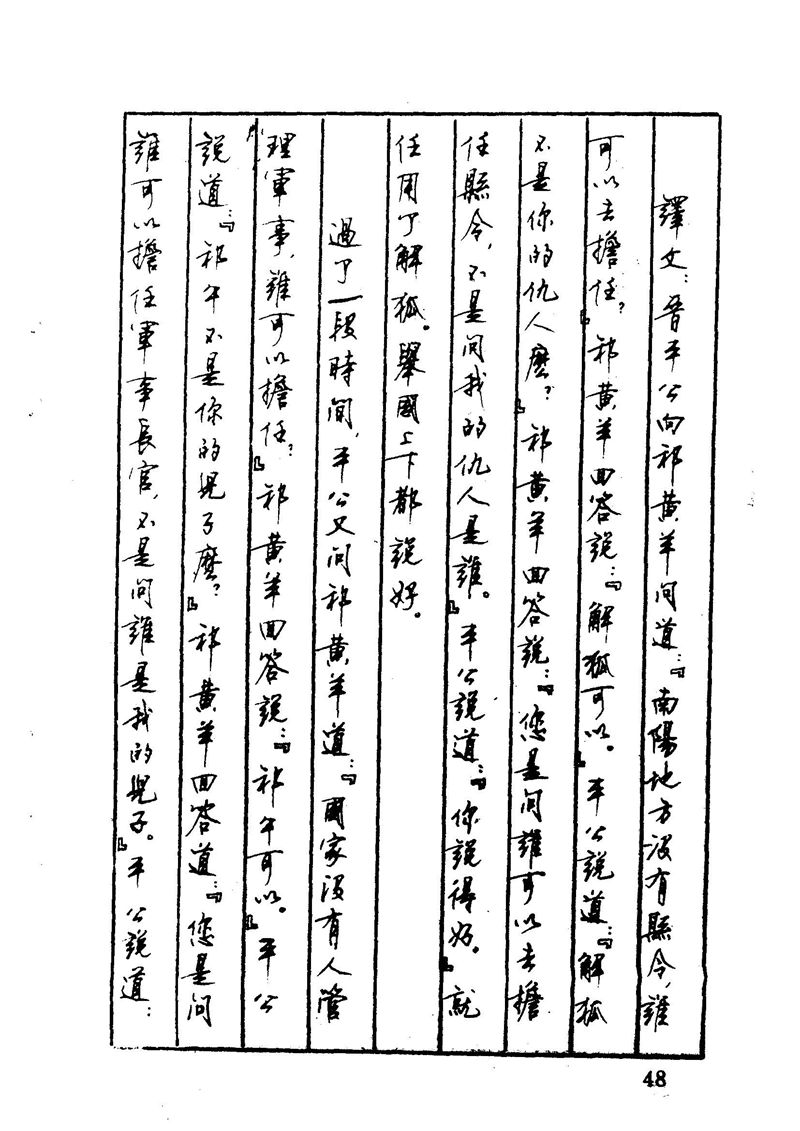 譯文：晉平公向祁黃羊問道：『南陽地方沒有縣令，誰
可以去擔任？』祁黃羊回答說：『解狐可以。』平公說道：『解狐
不是你的仇人麼？』祁黃羊回答說：『您是問誰可以去擔
任縣令，不是問我的仇人是誰。』平公說道：『你說得好。』就
任用了解狐。舉國上下都說好。
過了一段時間，平公又問祁黃羊道：『國家沒有人管
理軍事，誰可以擔任？』祁黃羊回答說：『祁午可以。』平公
說道：『祁午不是你的兒子麼？』祁黃羊回答道：『您是問
誰可以擔任軍事長官，不是問誰是我的兒子。』平公說道：
48